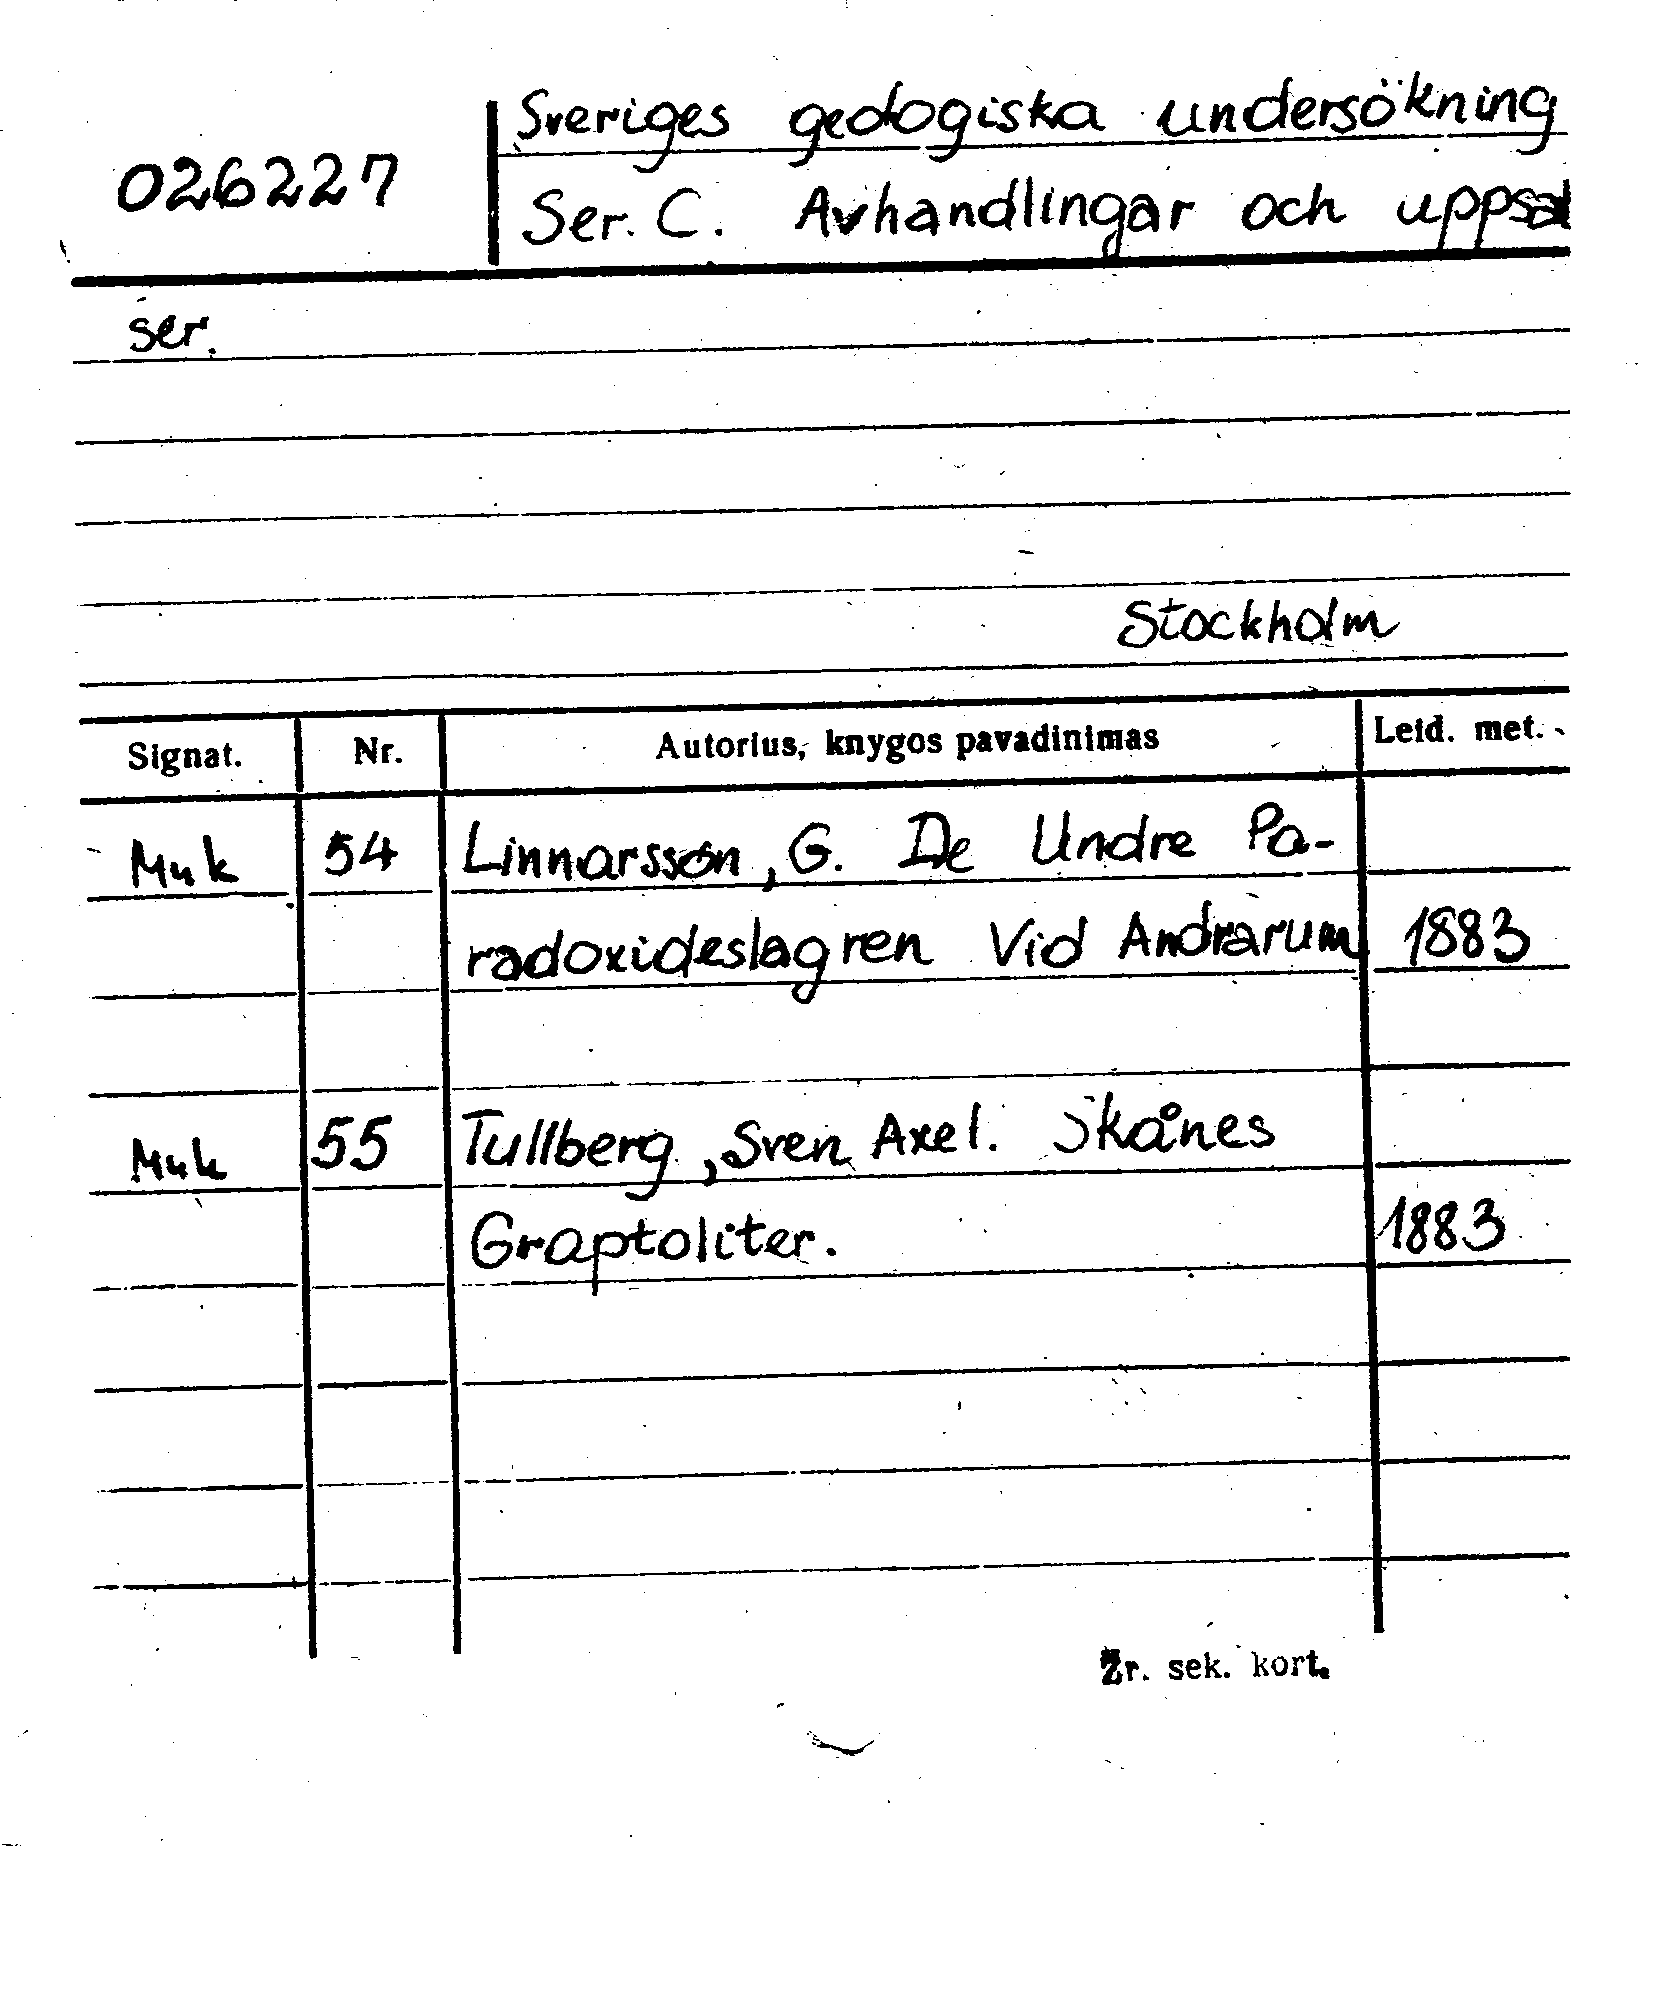 Sveriges geologiska undersökning
026227
Ser. C. Avhandlingar och uppsat
ser.
Stockholm
Signat. Nr. Autorius, knygos pavadinimas Leid. met.
Muk 54 Linnarsson, G. De Undre Pa-
radoxideslagren Vid Andrarum 1883
Muk 55 Tullberg, Sven Axel. Skånes
Graptoliter. 1883
Žr. sek. kort.